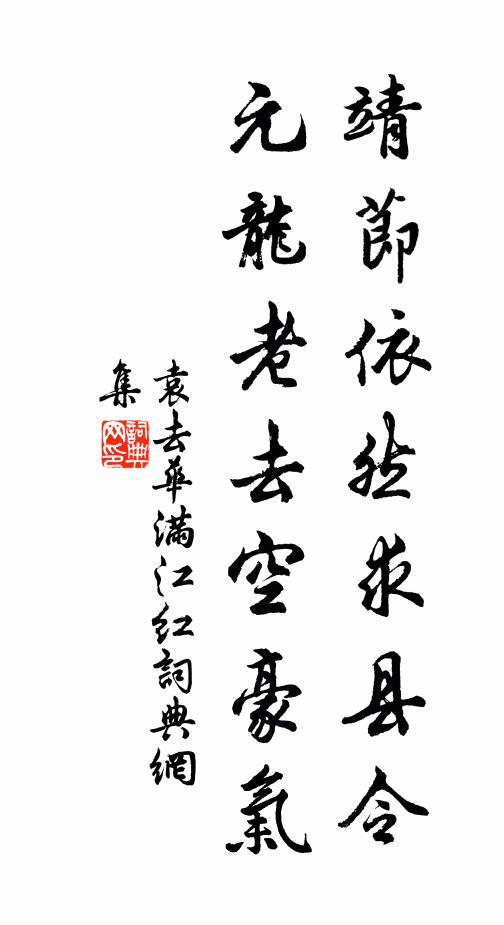 靖節依然求县令
元龍老去空豪氣
袁去華滿江红詞典網
集
詞典网印